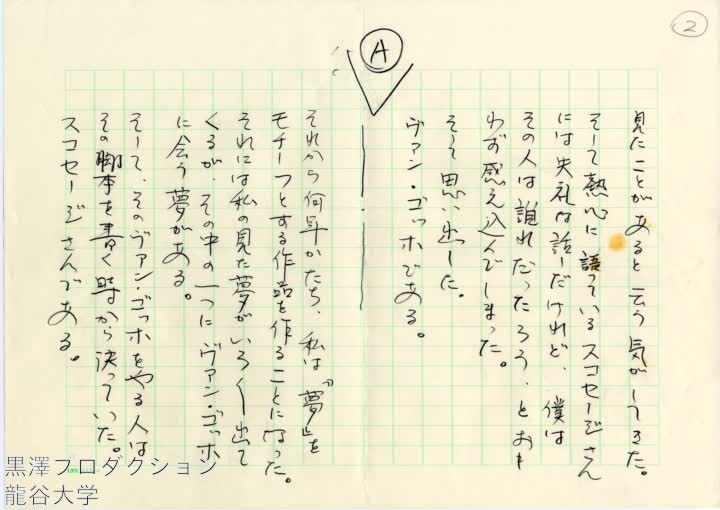 2
見たことがあると云う気がしてきた。
そして熱心に語っているスコセージさん
には失礼な話だけれど、僕は
その人は誰れだったろう、とおも
わず考え込んでしまった。
そして思い出した。
ヴァン・ゴッホである。
A
それから何年かたち、私は「夢」を
モチーフとする作品を作ることになった。
それには私の見た夢がいろ〱出て
くるが、その中の一つにヴァン・ゴッホ
に会う夢がある。
そして、そのヴァン・ゴッホをやる人は
その脚本を書く時から決っていた。
スコセージさんである。
黒澤プロダクション
龍谷大学